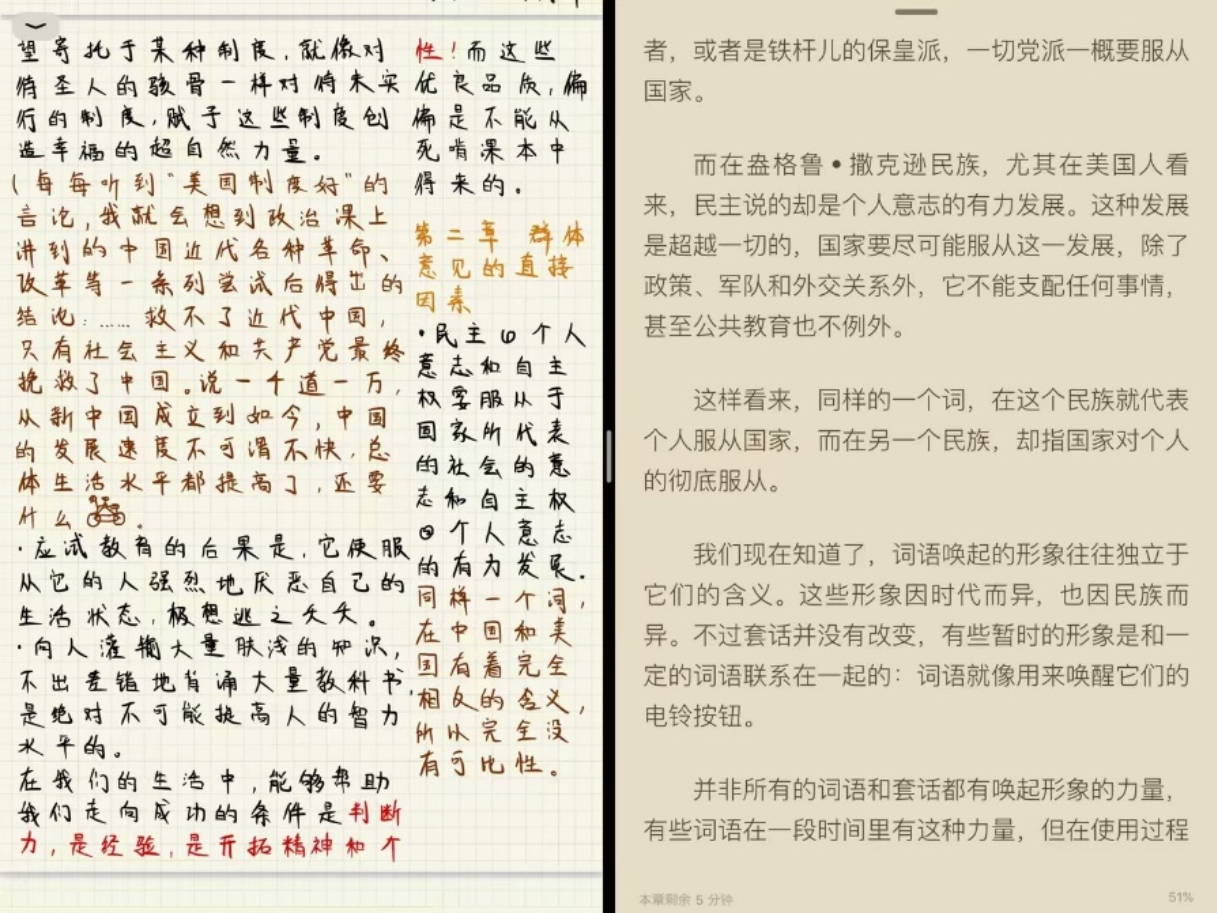 望寄托于某种制度，就像对
待圣人的骸骨一样对待未实
行的制度，赋予这些制度创
造幸福的超自然力量。
（每每听到“美国制度好”的
言论，我就会想到政治课上
讲到的中国近代各种革命、
改革等一系列尝试后得出的
结论：……救不了近代中国，
只有社会主义和共产党最终
挽救了中国。说一千道一万，
从新中国成立到如今，中国
的发展速度不可谓不快，总
体生活水平都提高了，还要
什么。
·应试教育的后果是，它使服
从它的人强烈地厌恶自己的
生活状态，极想逃之夭夭。
·向人灌输大量肤浅的知识，
不出差错地背诵大量教科书，
是绝对不可能提高人的智力
水平的。
在我们的生活中，能够帮助
我们走向成功的条件是判断
力，是经验，是开拓精神和个
性！而这些
优良品质，偏
偏是不能从
死啃课本中
得来的。
第二章 群体
意见的直接
因素
·民主①个人
意志和自主
权要服从于
国家所代表
的社会的意
志和自主权
②个人意志
的有力发展.
同样一个词，
在中国和美
国有着完全
相反的含义，
所以完全没
有可比性。
者，或者是铁杆儿的保皇派，一切党派一概要服从
国家。
而在盎格鲁•撒克逊民族，尤其在美国人看
来，民主说的却是个人意志的有力发展。这种发展
是超越一切的，国家要尽可能服从这一发展，除了
政策、军队和外交关系外，它不能支配任何事情，
甚至公共教育也不例外。
这样看来，同样的一个词，在这个民族就代表
个人服从国家，而在另一个民族，却指国家对个人
的彻底服从。
我们现在知道了，词语唤起的形象往往独立于
它们的含义。这些形象因时代而异，也因民族而
异。不过套话并没有改变，有些暂时的形象是和一
定的词语联系在一起的：词语就像用来唤醒它们的
电铃按钮。
并非所有的词语和套话都有唤起形象的力量，
有些词语在一段时间里有这种力量，但在使用过程
本章剩余 5 分钟
51%